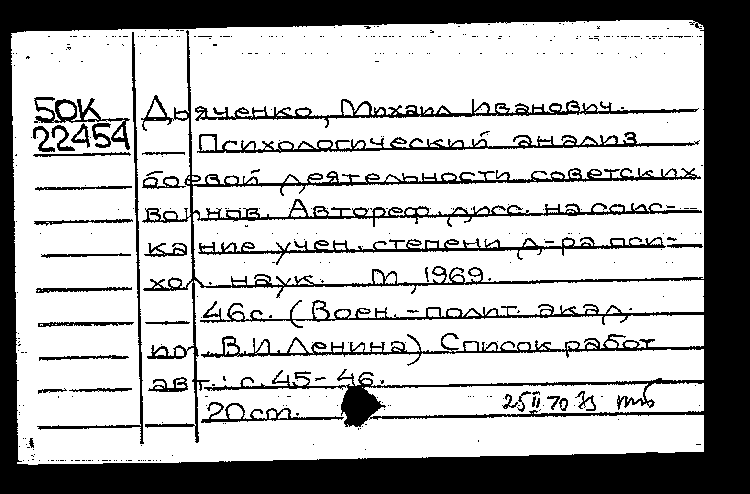 50К Дьяченко, Михаил Иванович.
22454 Психологический анализ
боевой деятельности советских
воинов. Автореф. дисс. на соис-
кание учен. степени д-ра пси-
хол. наук. М., 1969.
46с. (Воен.-полит. акад.
им. В.И.Ленина). Список работ
авт.: с. 45-46.
20cm. 25 II 70